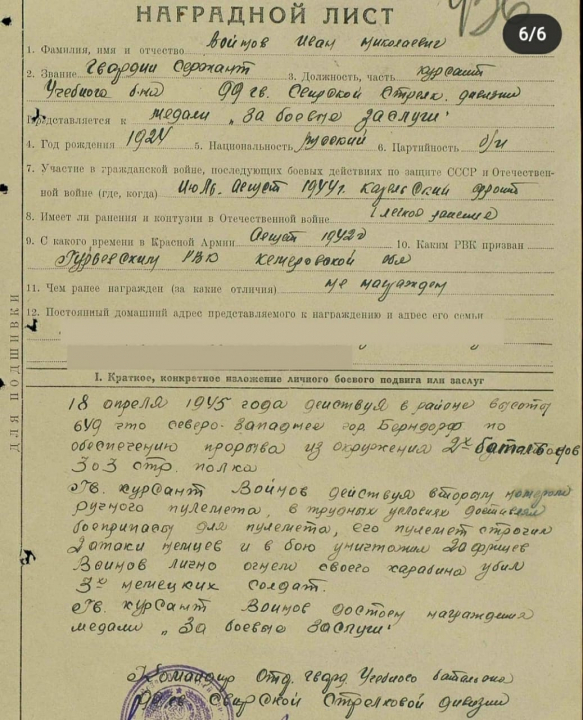 НАГРАДНОЙ ЛИСТ
6/6
1. Фамилия, имя и отчество Воинов Иван Николаевич
2. Звание Гвардии Сержант 3. Должность, часть курсант
Учебного б-на 99 гв. Свирской Стрелк. дивизии
Представляется к медали „За боевые заслуги"
4. Год рождения 1924 5. Национальность русский 6. Партийность б/п
7. Участие в гражданской войне, последующих боевых действиях по защите СССР и Отечествен-
ной войне (где, когда) Июль-Август 1944г. Карельский фронт
8. Имеет ли ранения и контузии в Отечественной войне 1 легкое ранение
9. С какого времени в Красной Армии Август 1942г 10. Каким РВК призван
Гурьевским РВК Кемеровской обл
11. Чем ранее награжден (за какие отличия) не награжден
12. Постоянный домашний адрес представляемого к награждению и адрес его семьи
ДЛЯ ПОДШИВКИ
I. Краткое, конкретное изложение личного боевого подвига или заслуг
18 апреля 1945 года действуя в районе высоты
649 что северо-западнее гор Берндорф по
обеспечению прорыва из окружения 2х батальонов
303 стр. полка
Гв. курсант Воинов действуя вторым номером
ручного пулемета, в трудных условиях доставлял
боеприпасы для пулемета, его пулемет строчил
2 атаки немцев и в бою уничтожил 20 фрицев
Воинов лично огнем своего карабина убил
3х немецких солдат.
Гв. курсант Воинов достоен награждения
медали „За боевые заслуги"
Командир Отд. Гвард. Учебного батальона
99 гв Свирской Стрелковой дивизии